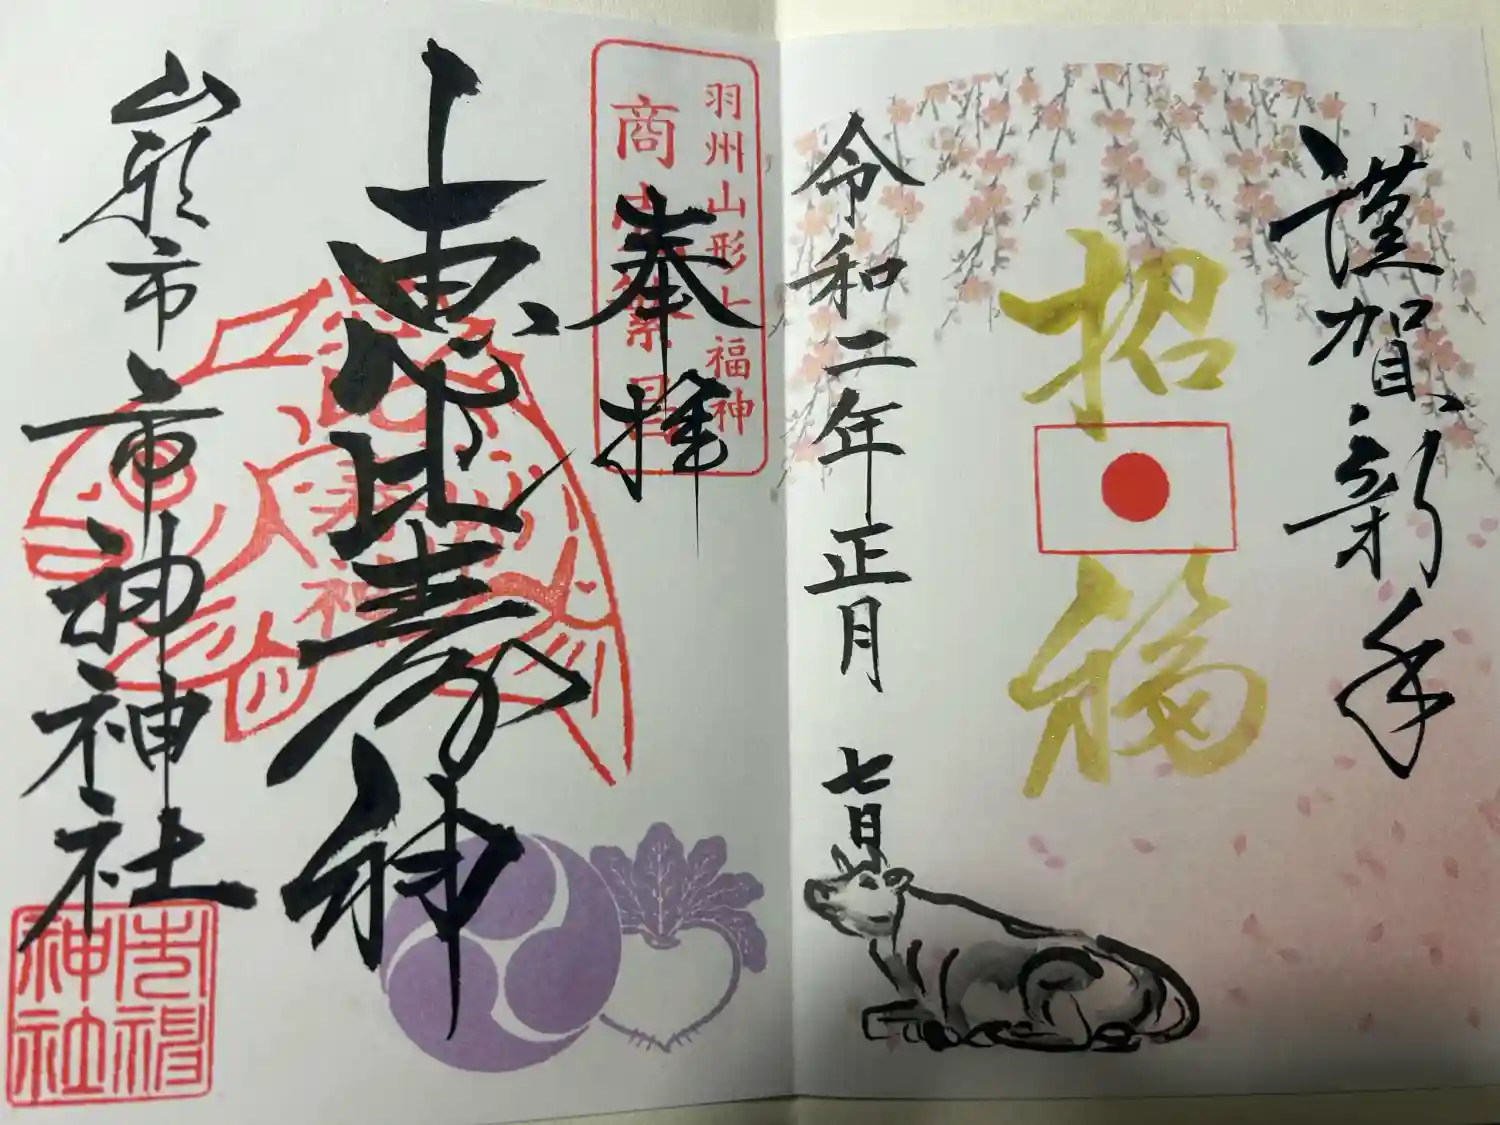 謹賀新年
招福
令和二年正月 七日
羽州山形七福神
商売繁昌
奉拝
恵比寿神
山形市 市神神社
市神神社